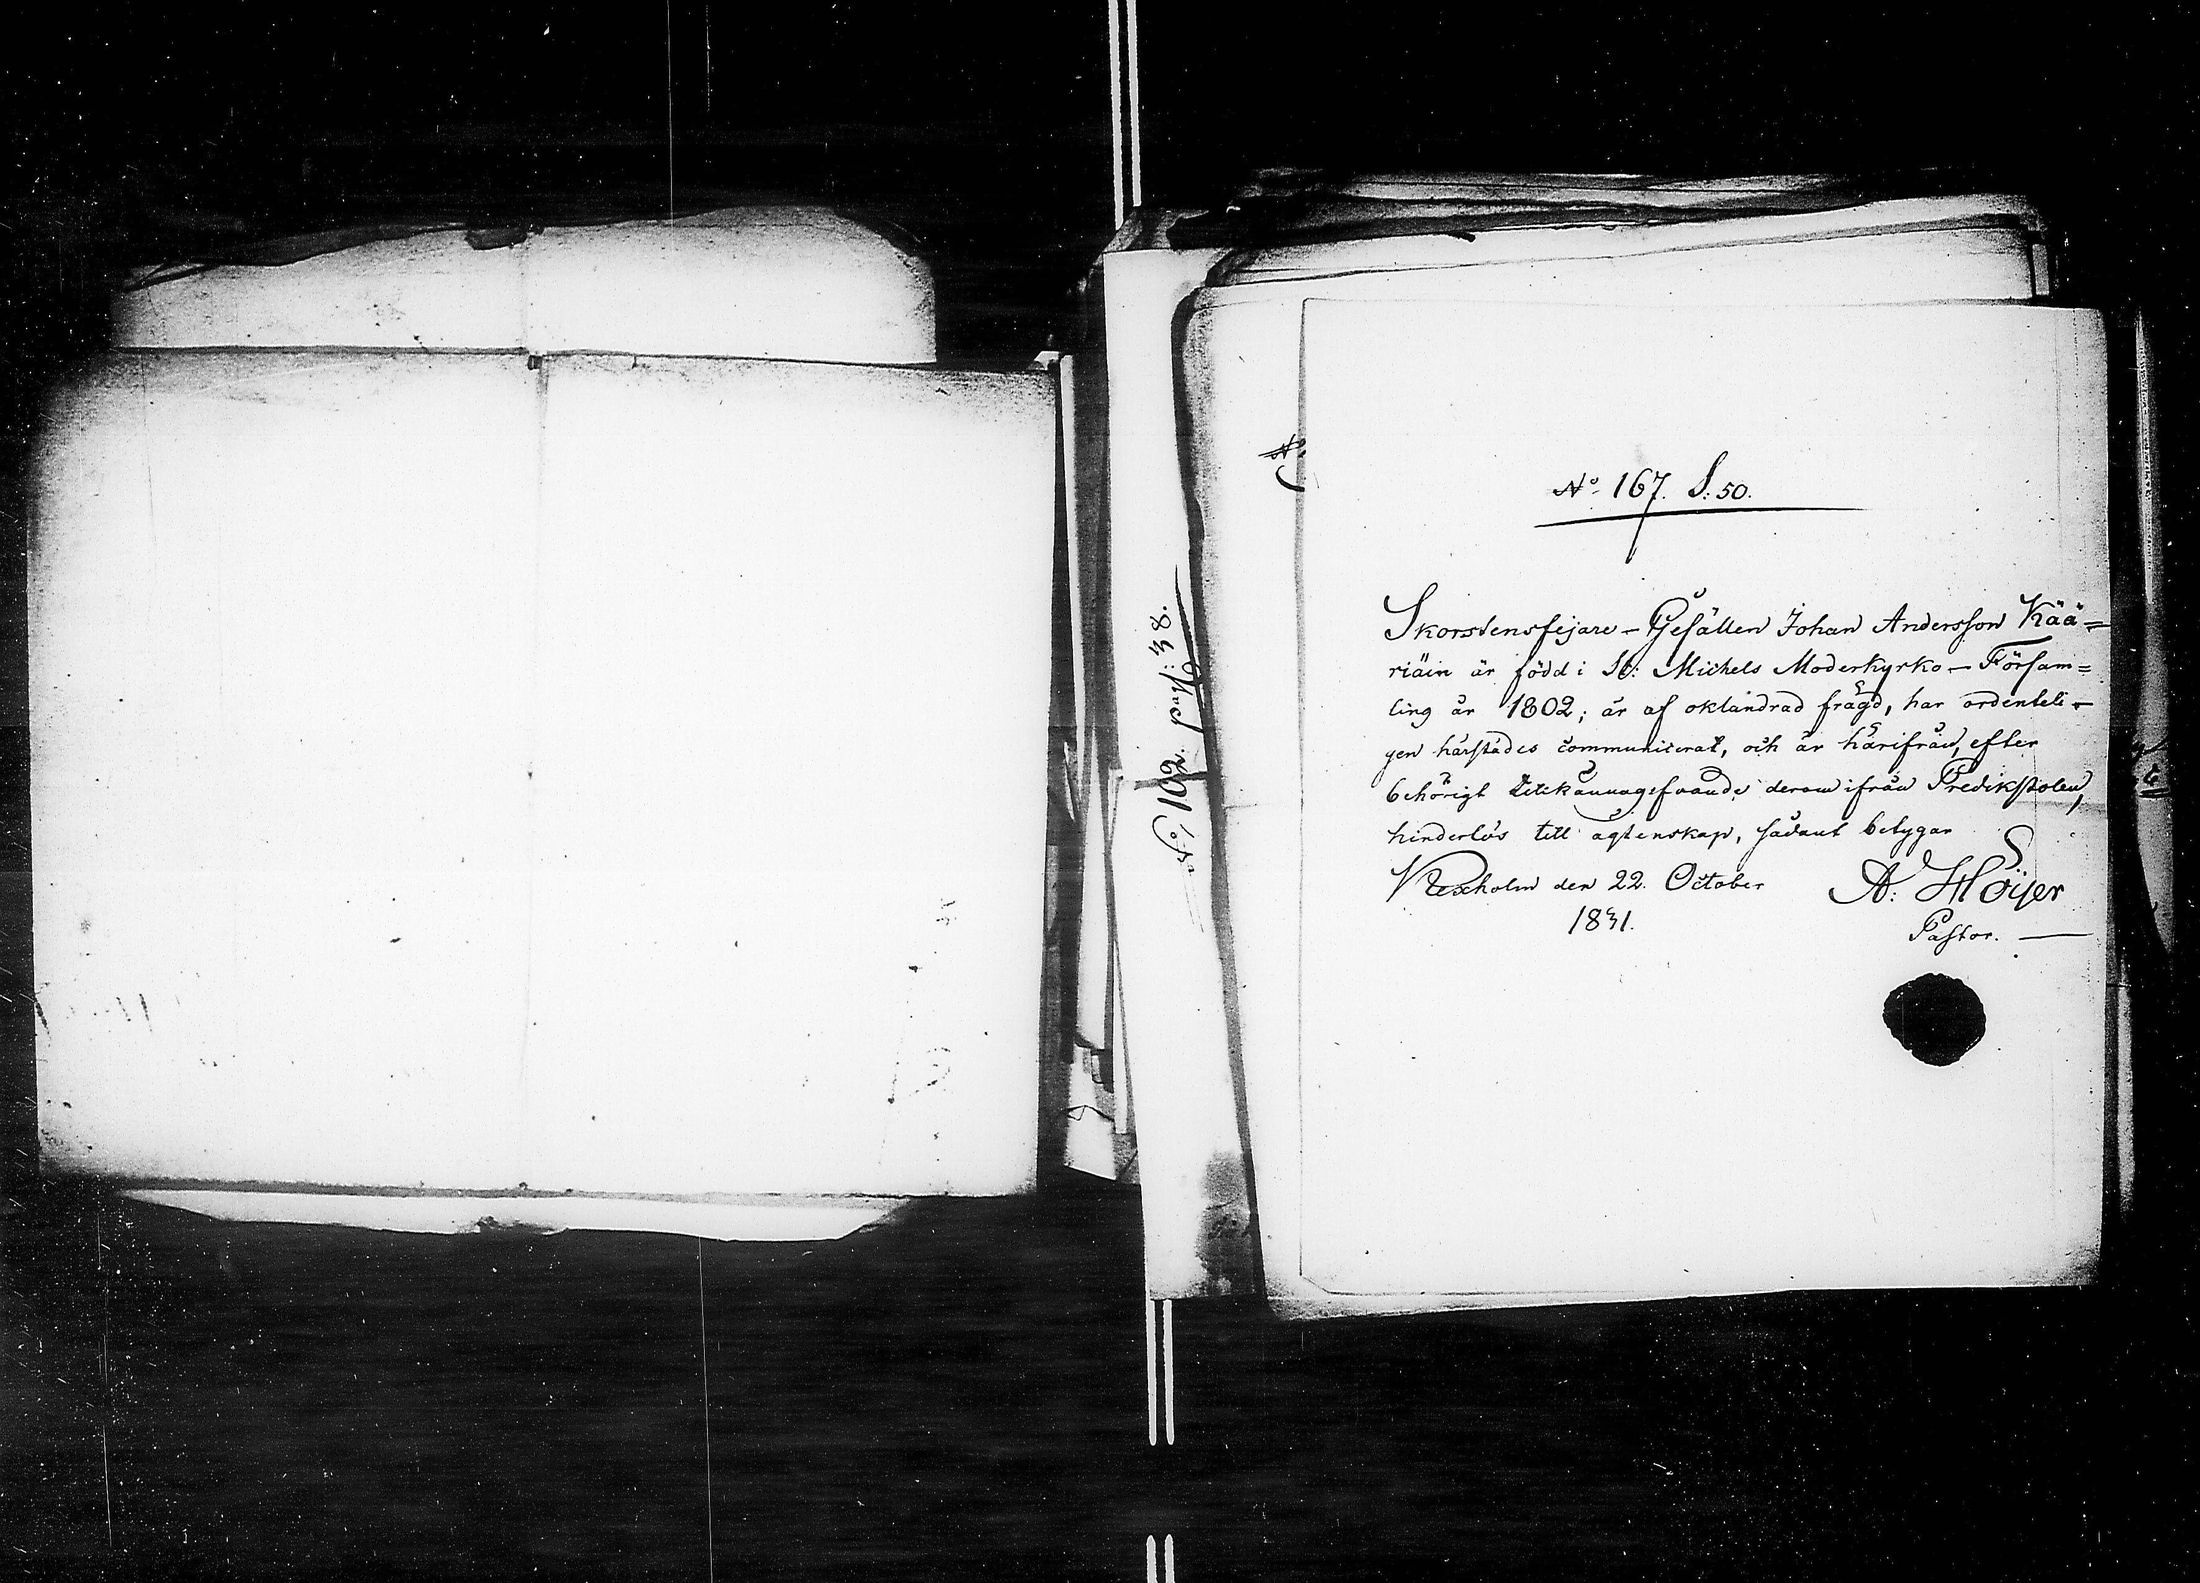 No 102. pag: 38.
No
No 167. S: 50.
Skorstensfejare-Gesällen Johan Andersson Kää=
riäin är född i St: Michels Moderkyrko-Försams=
ling år 1802; är af oklandrad frägd, har ordenteli-
gen härstädes communicerat, och är härifrån, efter
behörigt tillkännagifvande derom ifrån Predikstolen,
hinderlös till ägtenskap, sådant betygar
Kexholm den 22. October
1831.
A: Höijer
Pastor.